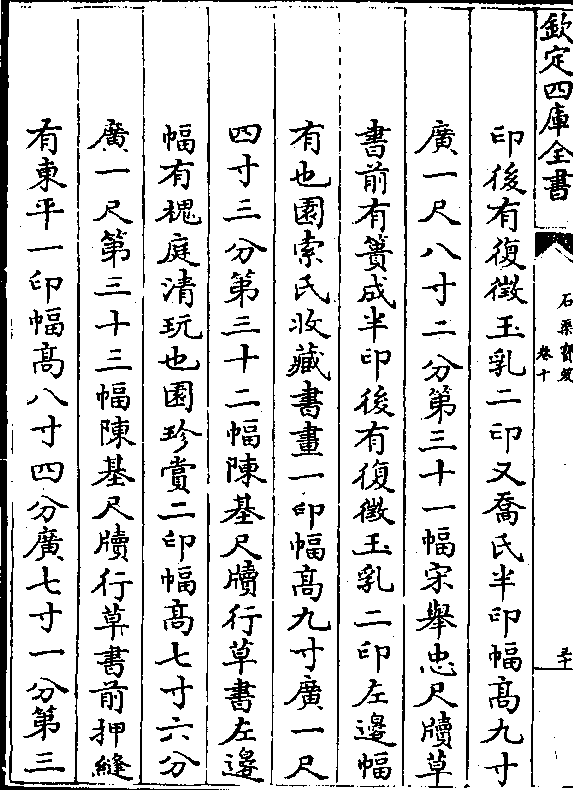 欽定四庫全書
石渠寶笈
卷十
印後有復徵玉乳二印又喬氏半印幅髙九寸
廣一尺八寸二分第三十一幅宋舉忠尺牘草
書前有蕢成半印後有復徵玉乳二印左邊幅
有也園索氏收藏書畫一印幅髙九寸廣一尺
四寸三分第三十二幅陳基尺牘行草書左邊
幅有槐庭清玩也園珍賞二印幅髙七寸六分
廣一尺第三十三幅陳基尺牘行草書前押縫
有東平一印幅髙八寸四分廣七寸一分第三